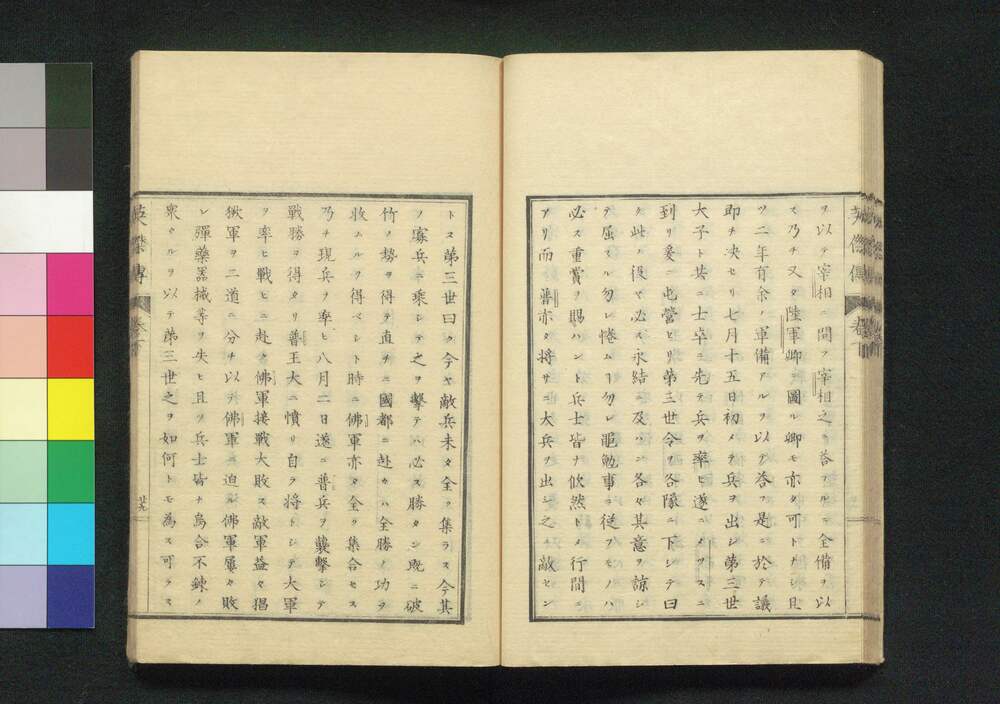 ヲ以テ宰相ニ問フ宰相之ニ答フルニ全備ヲ以
ス乃チ又タ陸軍卿ニ圖ル卿モ亦タ可トナシ且
ツ二年有余ノ軍備アルヲ以テ答フ是ニ於テ議
即チ决セリ七月十五日初メテ兵ヲ出シ第三世
太子ト共ニ士卒ニ先テ兵ヲ率ヒ遂ニメツスニ
到リ爰ニ屯營ヒリ第三世令ヲ各隊ニ下シテ曰
ク此ノ役ヤ必ス永結ニ及ハン各々其意ヲ諒シ
テ屈スル勿レ惓ム勿レ黽勉事ニ從フモノハ
必ス重賞ヲ賜ハント兵士皆ナ佽然トメ行間ニ
アリ而普亦タ将サニ大兵ヲ出シ之ニ敵セン
英傑傳
卷下
トス第三世曰ク今ヤ敵兵未タ全ク集ラス今其
ノ寡兵ニ乘シテ之ヲ擊テハ必ス勝タン既ニ破
竹ノ勢ヲ得テ直チニ國都ニ赴カハ全勝ノ功ヲ
收ムルヲ得ベシト時ニ佛軍亦タ全ク集合セス
乃チ現兵ヲ率ヒ八月二日遂ニ普兵ヲ襲擊シテ
戰勝ヲ得タリ普王大ニ憤リ自ラ将トシテ大軍
ヲ率ヒ戰ヒニ赴ク佛軍接戰大敗ス敵軍益々猖
獗軍ヲ二道ニ分チ以テ佛軍ニ迫ル佛軍屢々敗
レ彈藥器械等ヲ失ヒ且ツ兵士皆ナ烏合不錬ノ
衆ナルヲ以テ第三世之ヲ如何トモ為ス可ラス
英傑傳
卷下
廿六